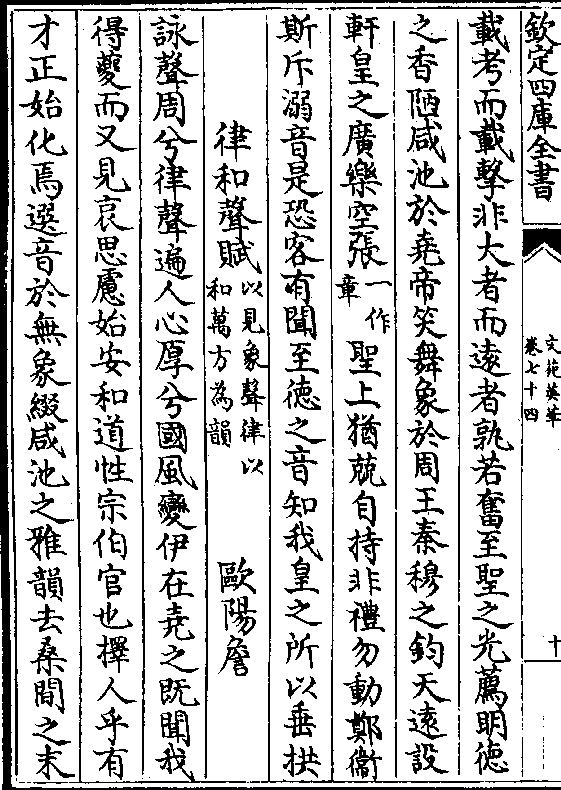 欽定四庫全書
文苑英華
卷七十四
十
載考而載擊非大者而遠者孰若奮至聖之光薦明德
之香陋咸池於堯帝笑舞象於周王秦穆之鈞天遠設
軒皇之廣樂空張一作章聖上猶兢自持非禮勿動鄭衛
斯斥溺音是恐客有聞至德之音知我皇之所以垂拱
律和聲賦以見象聲律以和萬方為韻 歐陽詹
詠聲周兮律聲遍人心厚兮國風變伊在堯之既聞我
得夔而又見哀思慮始安和道性宗伯官也擇人乎有
才正始化焉選音於無象綴咸池之雅韻去桑間之末